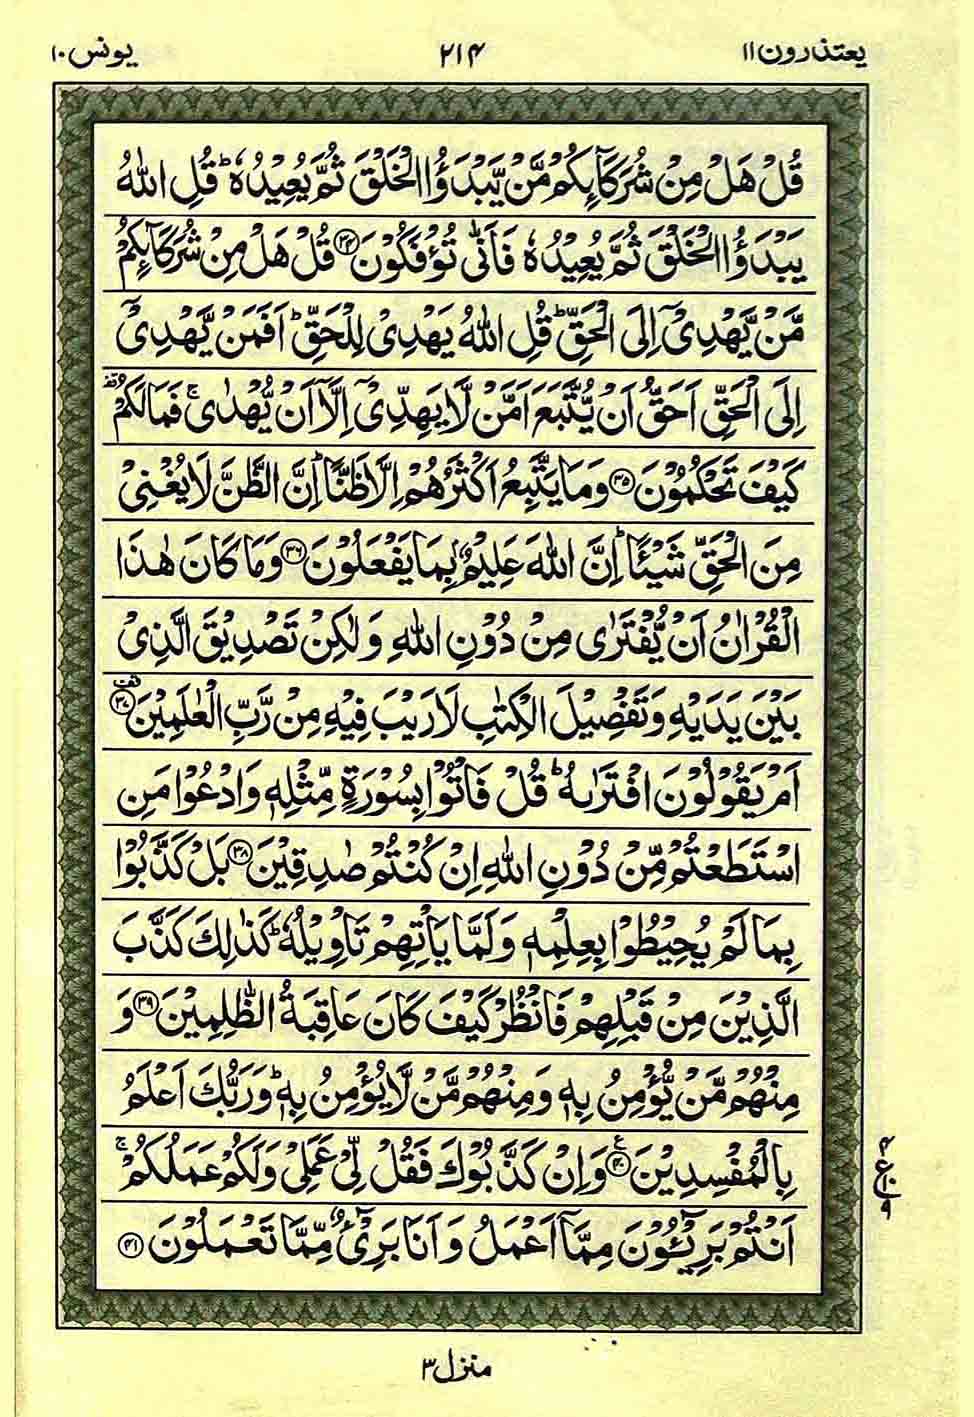 یعتذرون ۱۱ ۲۱۴ یونس ۱۰
قُلْ هَلْ مِنْ شُرَكَآئِكُمْ مَّنْ یَّبْدَؤُا الْخَلْقَ ثُمَّ یُعِیْدُهٗ ؕ قُلِ اللّٰهُ
یَبْدَؤُا الْخَلْقَ ثُمَّ یُعِیْدُهٗ فَاَنّٰی تُؤْفَكُوْنَ ۝۳۴ قُلْ هَلْ مِنْ شُرَكَآئِكُمْ
مَّنْ یَّهْدِیْۤ اِلَی الْحَقِّ ؕ قُلِ اللّٰهُ یَهْدِیْ لِلْحَقِّ ؕ اَفَمَنْ یَّهْدِیْۤ
اِلَی الْحَقِّ اَحَقُّ اَنْ یُّتَّبَعَ اَمَّنْ لَّا یَهِدِّیْۤ اِلَّاۤ اَنْ یُّهْدٰی ۚ فَمَا لَكُمْ ۫
كَیْفَ تَحْكُمُوْنَ ۝۳۵ وَمَا یَتَّبِعُ اَكْثَرُهُمْ اِلَّا ظَنًّا ؕ اِنَّ الظَّنَّ لَا یُغْنِیْ
مِنَ الْحَقِّ شَیْـًٔا ؕ اِنَّ اللّٰهَ عَلِیْمٌۢ بِمَا یَفْعَلُوْنَ ۝۳۶ وَمَا كَانَ هٰذَا
الْقُرْاٰنُ اَنْ یُّفْتَرٰی مِنْ دُوْنِ اللّٰهِ وَلٰكِنْ تَصْدِیْقَ الَّذِیْ
بَیْنَ یَدَیْهِ وَتَفْصِیْلَ الْكِتٰبِ لَا رَیْبَ فِیْهِ مِنْ رَّبِّ الْعٰلَمِیْنَ ۝۳۷
اَمْ یَقُوْلُوْنَ افْتَرٰىهُ ؕ قُلْ فَاْتُوْا بِسُوْرَةٍ مِّثْلِهٖ وَادْعُوْا مَنِ
اسْتَطَعْتُمْ مِّنْ دُوْنِ اللّٰهِ اِنْ كُنْتُمْ صٰدِقِیْنَ ۝۳۸ بَلْ كَذَّبُوْا
بِمَا لَمْ یُحِیْطُوْا بِعِلْمِهٖ وَلَمَّا یَاْتِهِمْ تَاْوِیْلُهٗ ؕ كَذٰلِكَ كَذَّبَ
الَّذِیْنَ مِنْ قَبْلِهِمْ فَانْظُرْ كَیْفَ كَانَ عَاقِبَةُ الظّٰلِمِیْنَ ۝۳۹ وَ
مِنْهُمْ مَّنْ یُّؤْمِنُ بِهٖ وَمِنْهُمْ مَّنْ لَّا یُؤْمِنُ بِهٖ ؕ وَرَبُّكَ اَعْلَمُ
بِالْمُفْسِدِیْنَ ۝۴۰ وَاِنْ كَذَّبُوْكَ فَقُلْ لِّیْ عَمَلِیْ وَلَكُمْ عَمَلُكُمْ ۚ
اَنْتُمْ بَرِیْٓـُٔوْنَ مِمَّاۤ اَعْمَلُ وَاَنَا بَرِیْٓءٌ مِّمَّا تَعْمَلُوْنَ ۝۴۱
منزل ۳